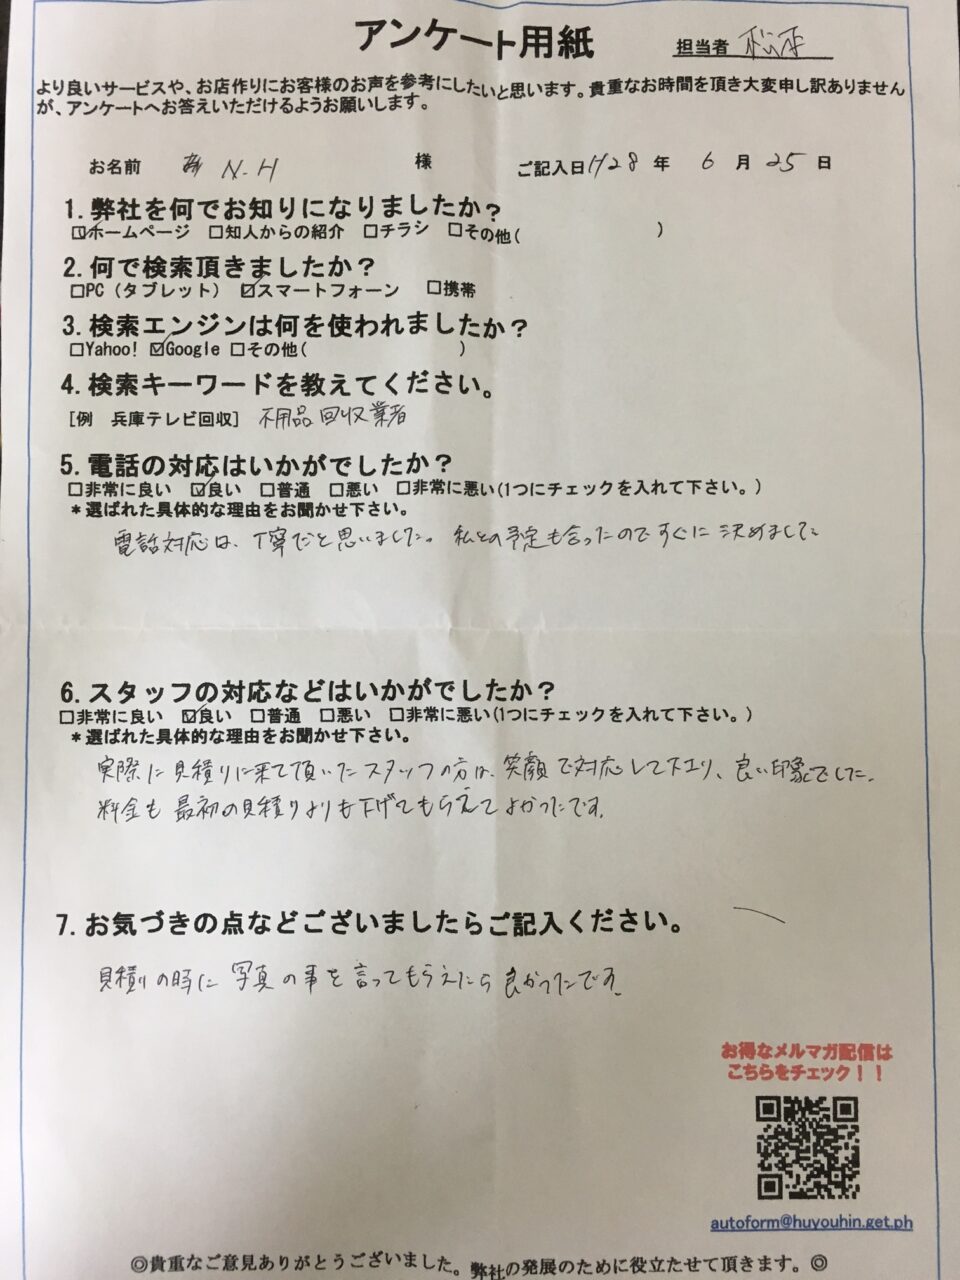 アンケート用紙
担当者
より良いサービスや、お店作りにお客様のお声を参考にしたいと思います。貴重なお時間を頂き大変申し訳ありません
が、アンケートへお答えいただけるようお願いします。
お名前 N.H 様 ご記入日 H28 年 6 月 25 日
1. 弊社を何でお知りになりましたか?
☑ホームページ □知人からの紹介 □チラシ □その他( )
2. 何で検索頂きましたか?
□PC(タブレット) ☑スマートフォーン □携帯
3. 検索エンジンは何を使われましたか?
□Yahoo! ☑Google □その他( )
4. 検索キーワードを教えてください。
[例 兵庫テレビ回収] 不用品回収業者
5. 電話の対応はいかがでしたか?
□非常に良い ☑良い □普通 □悪い □非常に悪い(1つにチェックを入れて下さい。)
*選ばれた具体的な理由をお聞かせ下さい。
電話対応は、丁寧だと思いました。私との予定も合ったのですぐに決めました
6. スタッフの対応などはいかがでしたか?
□非常に良い ☑良い □普通 □悪い □非常に悪い(1つにチェックを入れて下さい。)
*選ばれた具体的な理由をお聞かせ下さい。
実際に見積りに来て頂いたスタッフの方は、笑顔で対応して下さり、良い印象でした。
料金も最初の見積りよりも下げてもらえてよかったです。
7. お気づきの点などございましたらご記入ください。
見積りの時に写真の事を言ってもらえたら良かったです。
お得なメルマガ配信は
こちらをチェック!!
autoform@huyouhin.get.ph
◎貴重なご意見ありがとうございました。弊社の発展のために役立たせて頂きます。◎